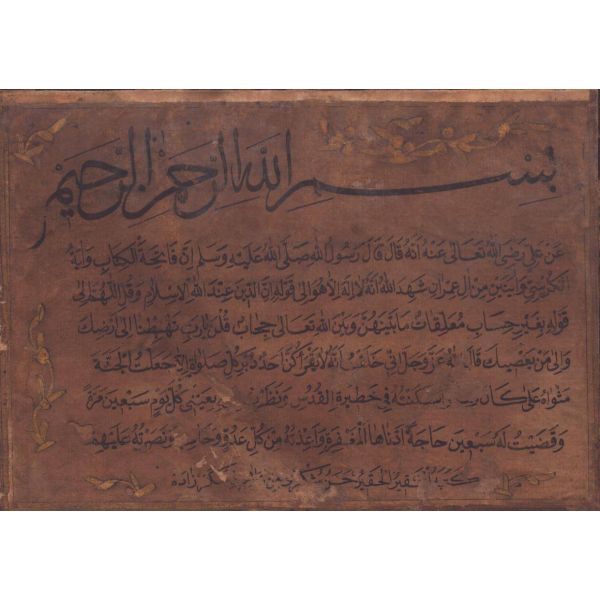 بسم الله الرحمن الرحيم
عن علي رضي الله تعالى عنه انه قال قال رسول الله صلى الله عليه وسلم ان فاتحة الكتاب وآية
الكرسي وآيتين من آل عمران شهد الله انه لا اله الا هو الى قوله ان الدين عند الله الاسلام وقل اللهم الى
قوله بغير حساب معلقات ما بينهن وبين الله تعالى حجاب قلن يا رب تهبطنا الى ارضك
والى من يعصيك قال الله عز وجل اني حلفت انه لا يقرأكن احد دبر كل صلوة الا جعلت الجنة
مثواه على ما كان واسكنته في حظيرة القدس ونظرت بعيني كل يوم سبعين مرة
وقضيت له سبعين حاجة ادناها المغفرة واعذته من كل عدو وحاسد ونصرته عليهم
كتبه الفقير الحقير زاده